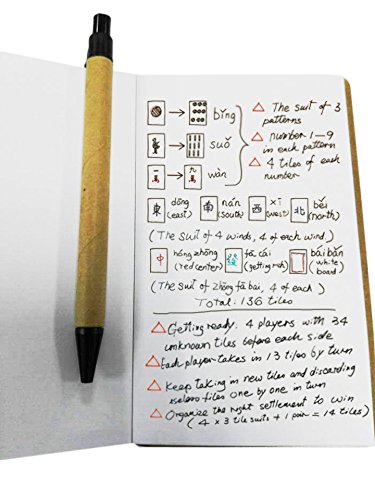 bǐng
suǒ
一萬 → 九萬 wàn
△ The suit of 3 patterns
△ number 1-9 in each pattern
△ 4 tiles of each number
東 dōng (east) 南 nán (south) 西 xī (west) 北 běi (north)
(The suit of 4 winds, 4 of each wind.)
中 hóng zhōng (red center) 發 fā cái (getting rich) bái bǎn (white board)
(The suit of zhōng fā bái, 4 of each)
Total: 136 tiles
△ Getting ready: 4 players with 34
unknown tiles before each side
△ Each player takes in 13 tiles by turn
△ Keep taking in new tiles and discarding
useless tiles one by one in turn
△ Organize the right settlement to win
(4 × 3 tile suits + 1 pair = 14 tiles)